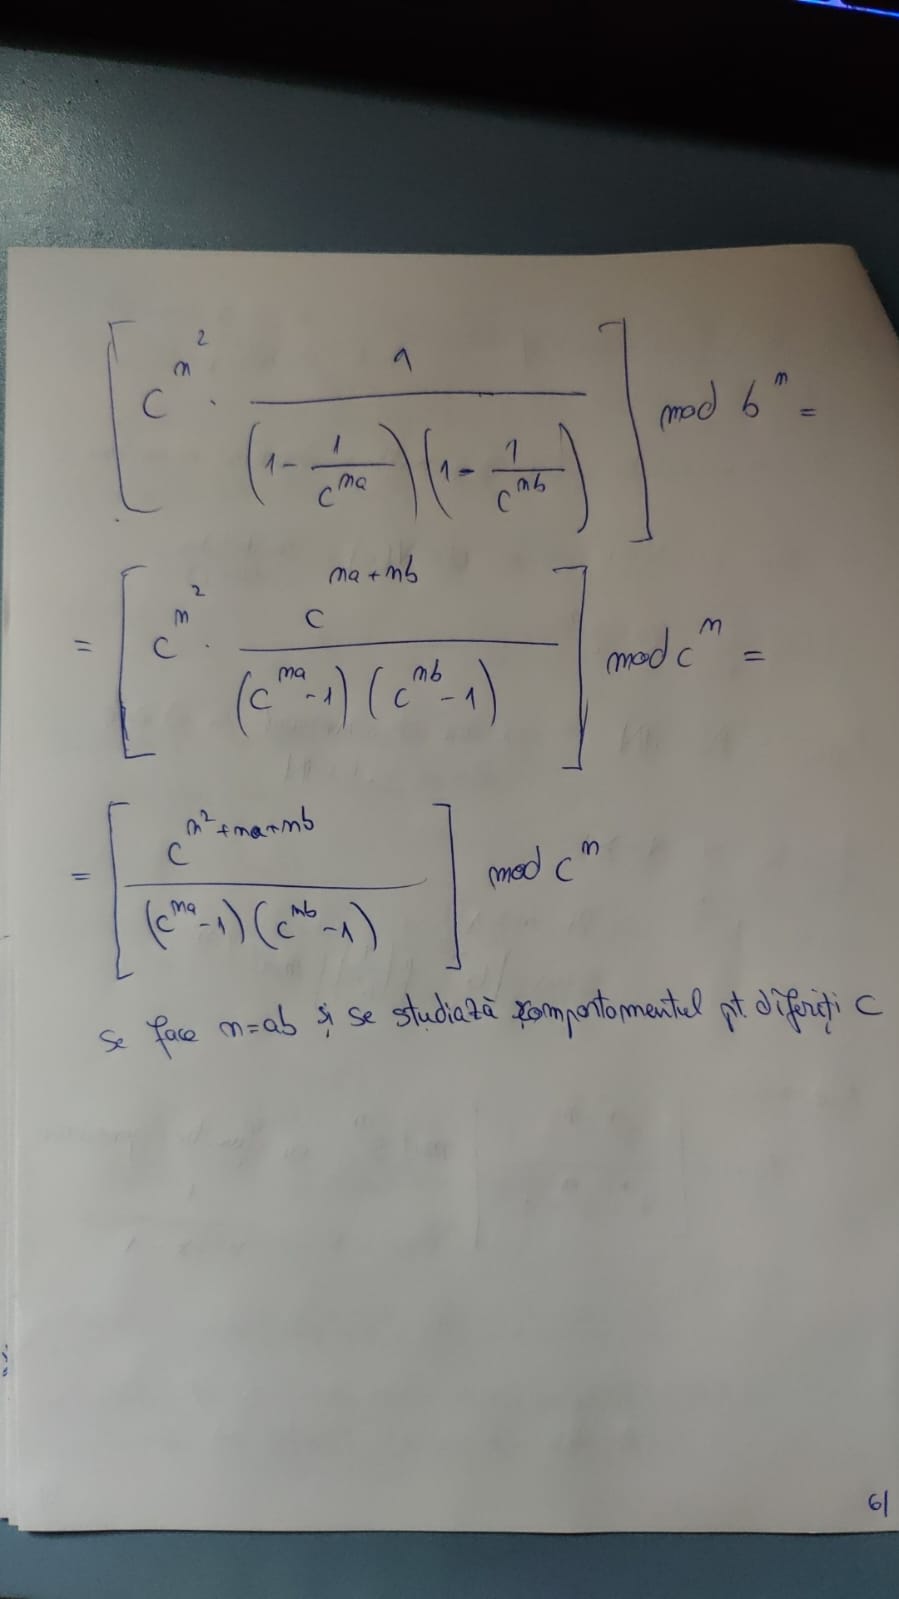 [c^{n^2} · \frac{1}{(1 - \frac{1}{c^{na}})(1 - \frac{1}{c^{nb}})}] mod b^n =
= [c^{n^2} · \frac{c^{na+nb}}{(c^{na}-1)(c^{nb}-1)}] mod c^n =
= [\frac{c^{n^2+na+nb}}{(c^{na}-1)(c^{nb}-1)}] mod c^n
se face n=ab și se studiază comportamentul pt. diferiți c
61